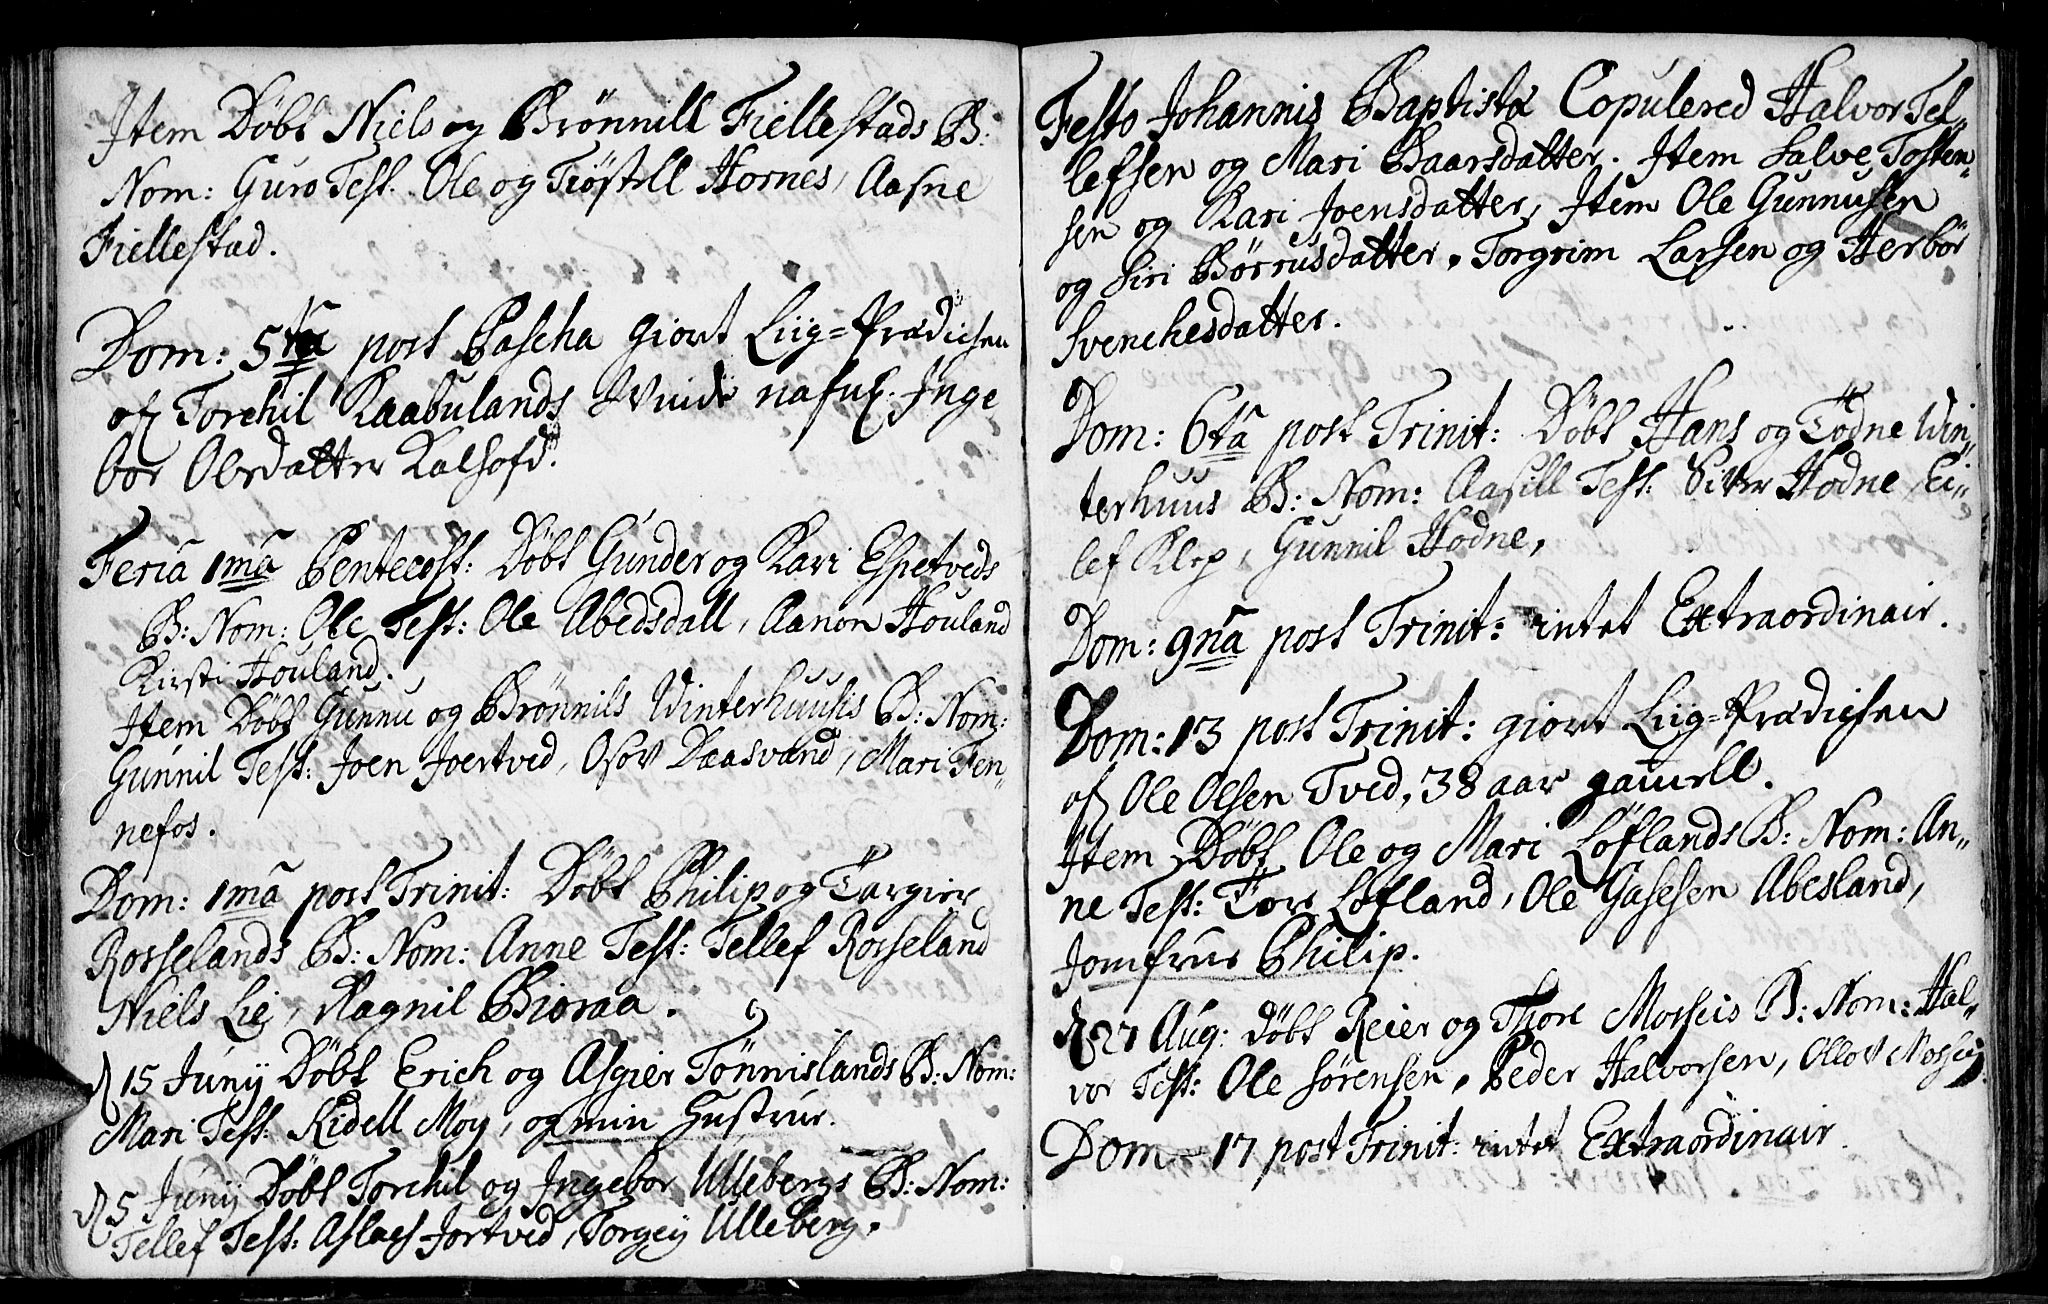 Item Döbt Niels og Brönnill Fiellestads B:
Nom: Guro Test. Ole og Tiöstell Hornes, Aasne
Fiellestad.
Dom: 5ta post Pascha giort Liig=Prædichen
of Torchil Kaabulands
bor Olesdatter
Feria 1ma Pentecost: Döbt Gunder og Kari Espetveds
B: Nom: Ole Test: Ole Abedsdall, Aanon Houland
Kirsti Houland.
Item Döbt Gunnu og Brönnils Vinterhuusis B: Nom:
Gunnil Test: Joen Joertved, Osov Daasvand, Mari Fen-
nefos.
Dom: 1ma post Trinit: Döbt Philip og Targier
Rosselands B: Nom: Anne Test: Tellef Rosseland
Niels Lie, Ragnil Bioraa.
d 15 Junij Döbt Erich og Asgier Tönnislands B: Nom:
Mari Test: Kidell Moy, og min Hustrue.
d 5 Junij Döbt Torchil og Ingebor Ullebergs B: Nom:
Tellef Test: Aslach Jortved, Torgey Ulleberg.
Festo Johannis Baptistæ Copulered Halvor Tel-
lefsen og Mari Baarsdatter. Item Salve Tosten-
sen og Kari Joensdatter, Item Ole Gunnusen
og Siri Börrusdatter. Torgrim Larsen og Herbör
Svenchesdatter.
Dom: 6ta post Trinit: Döbt Hans og Tödne Win-
terhuus B: Nom: Aasill Test: Siver Hodne, Ei-
lef Klep, Gunnil Hodne,
Dom: 9na post Trinit: intet Extraordinair.
Dom: 13 post Trinit: giort Liig=Prædichen
of Ole Olsen Tved, 38 aar gamell.
Item Döbt Ole og Mari Löflands B: Nom: An-
ne Test: Tore Löfland, Ole Gasesen Abesland,
Jomfrue Philip.
d 27 Aug: Döbt Reier og Thore Mosseis B: Nom: Hal-
vor Test: Ole Sörensen, Peder Halvorsen, Ollov Mossey
Dom 17 post Trinit: intet Extraordinair.